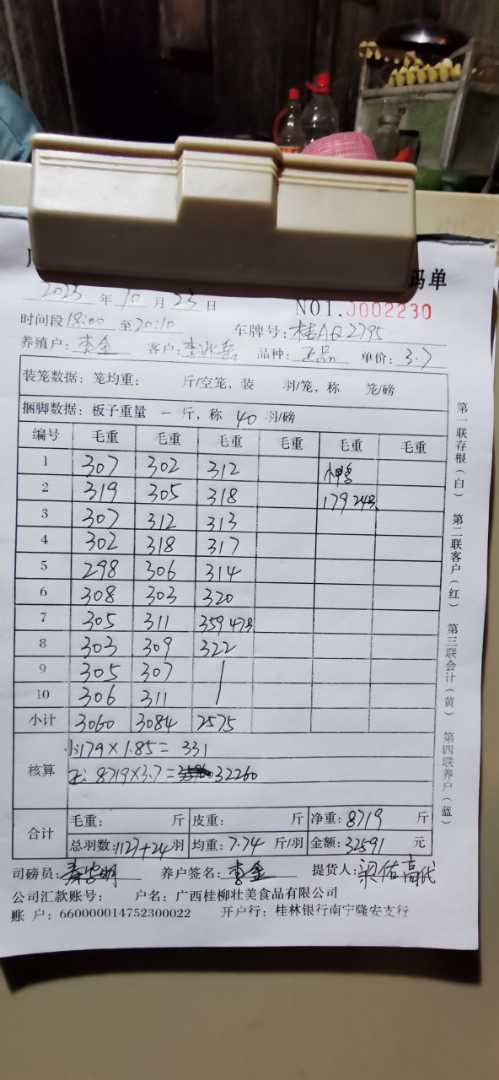 码单
2023 年 10 月 23 日 NO1.J002230
时间段 18:00 至 20:10 车牌号: 桂AQ2795
养殖户: 李金 客户: 品种: 正品 单价: 3.7
装笼数据: 笼均重: 斤/空笼, 装 羽/笼, 称 笼/磅
捆脚数据: 板子重量 一 斤, 称 40 羽/磅
编号 毛重 毛重 毛重 毛重 毛重 毛重
1 307 302 312
2 319 305 318 179 24羽
3 307 312 313
4 302 318 317
5 298 306 314
6 308 303 320
7 305 311 359 47羽
8 303 309 322
9 305 307
10 306 311
小计 3060 3084 2575
核算
179×1.85=331
正: 8719×3.7= 32260
合计
毛重: 斤 皮重: 斤 净重: 8719 斤
总羽数: 1127+24 羽 均重: 7.74 斤/羽 金额: 32591 元
司磅员: 养户签名: 李金 提货人:
公司汇款账号: 户名: 广西桂柳壮美食品有限公司
账 户: 660000014752300022 开户行: 桂林银行南宁隆安支行
第一联存根(白) 第二联客户(红) 第三联会计(黄) 第四联养户(蓝)